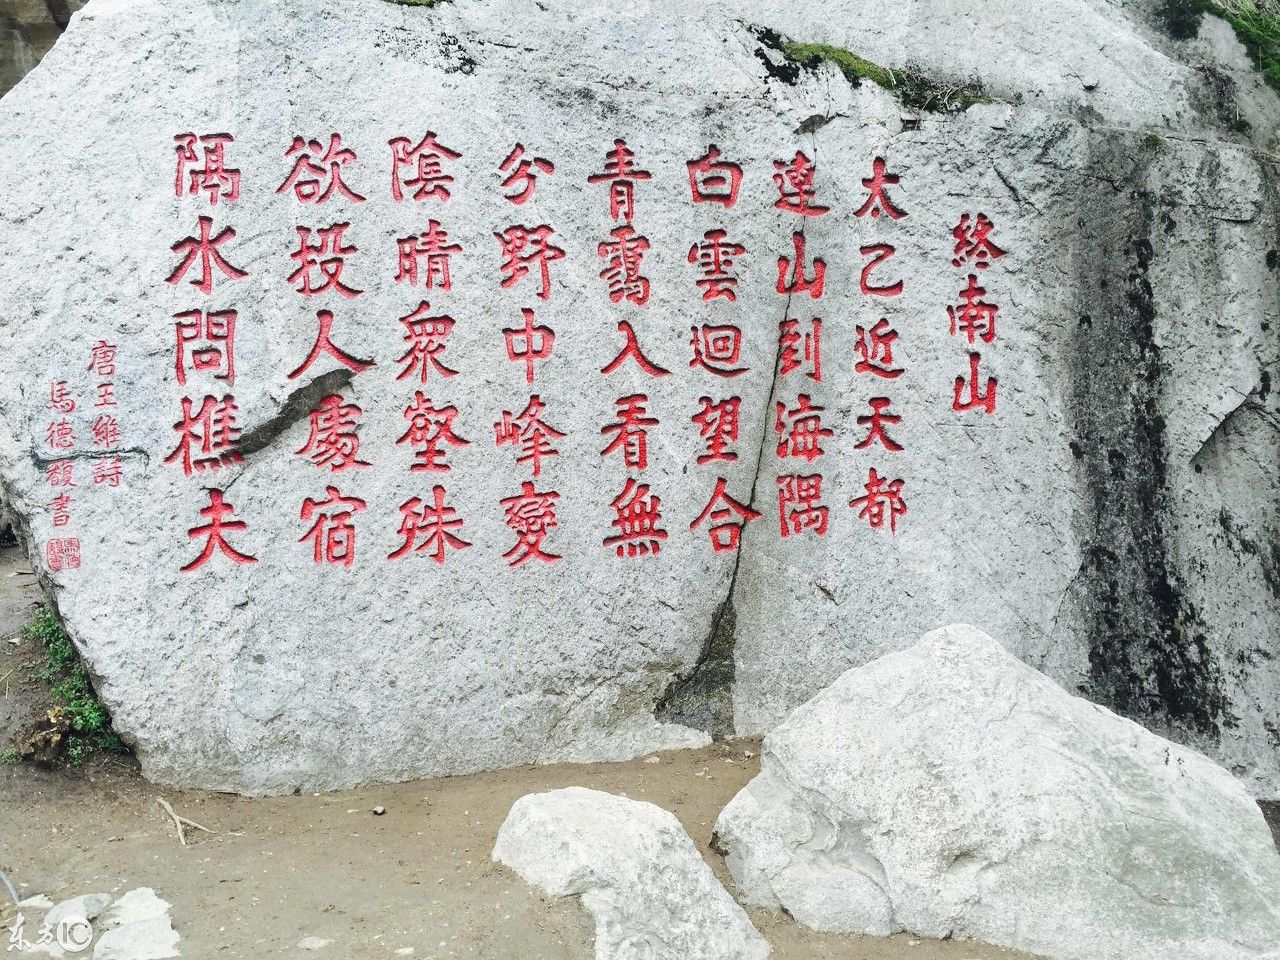 終南山
太乙近天都
連山到海隅
白雲迴望合
青靄入看無
分野中峰變
陰晴眾壑殊
欲投人處宿
隔水問樵夫
唐王維詩
馬德馥書
东方IC